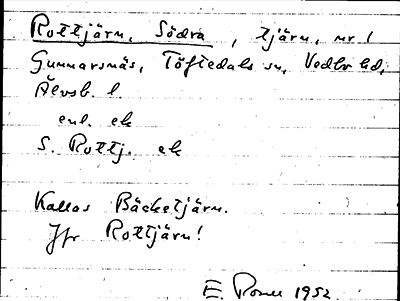 Rottjärn, Södra, tjärn, nr 1
Gunnarsnäs, Töftedals sn, Vedbo hd,
Älvsb. l.
enl. ek
S. Rottj. ek
Kallas Bäcketjärn.
Jfr Rottjärn!
E. 1952